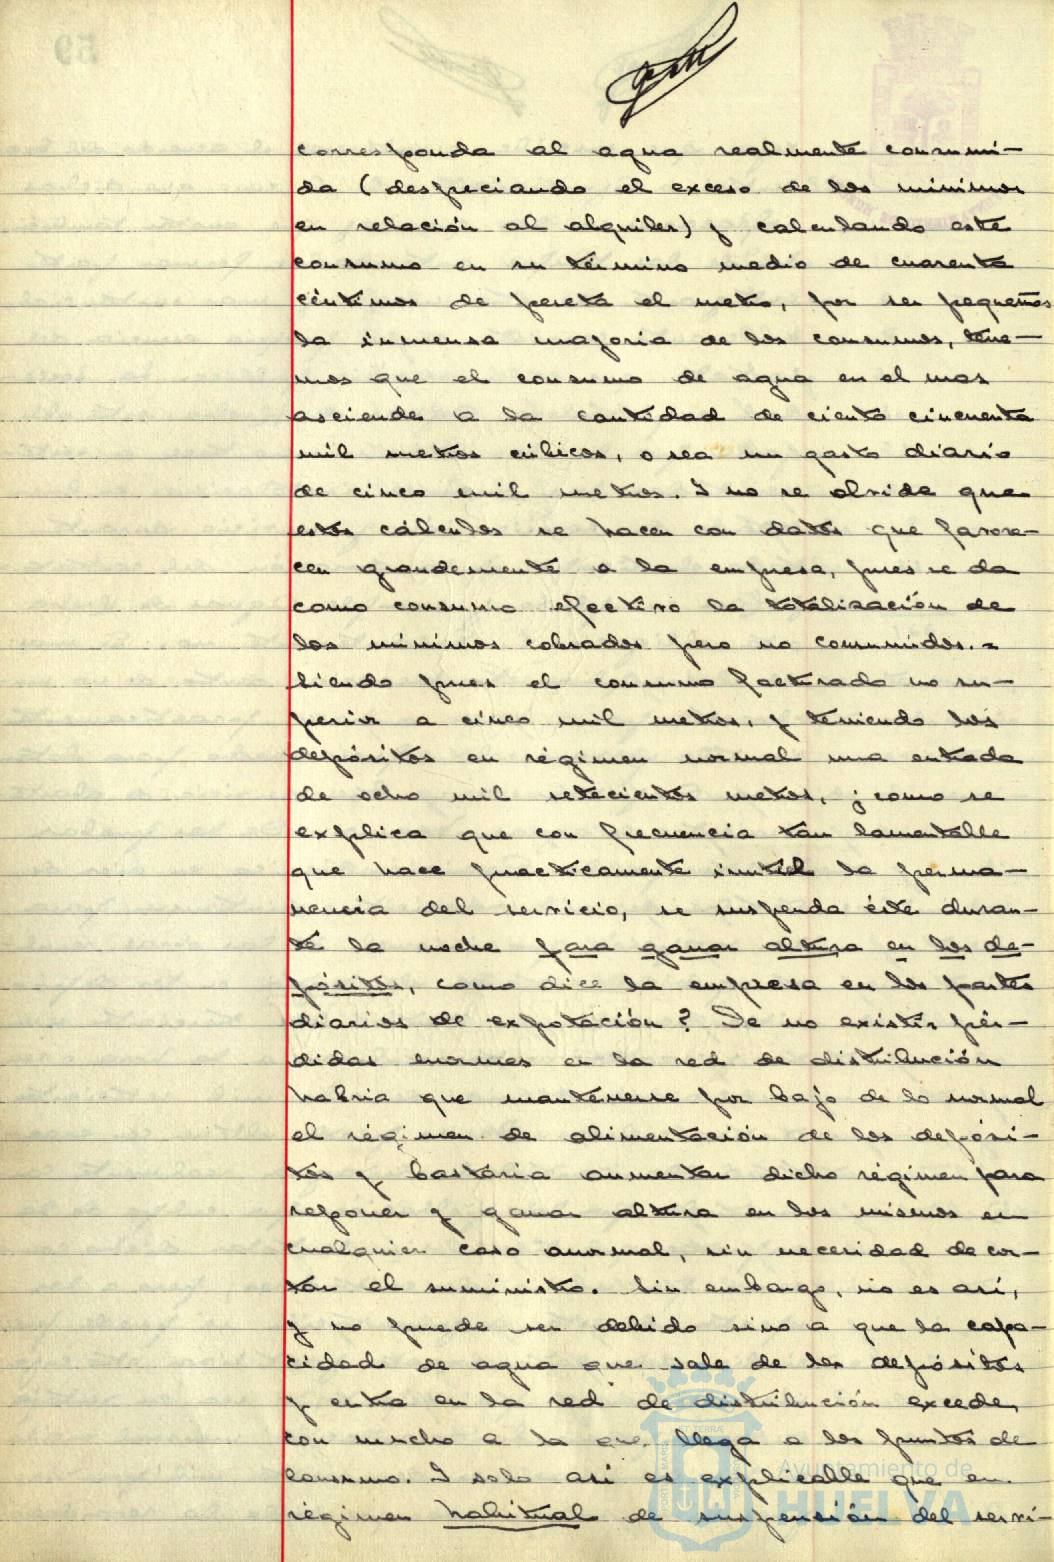 corresponda al agua realmente consumi-
da (despreciando el exceso de los mínimos
en relación al alquiler) y calculando este
consumo en su término medio de cuarenta
céntimos de peseta el metro, por ser pequeños
la inmensa mayoria de los consumos, tene-
mos que el consumo de agua en el mes
asciende a la cantidad de ciento cincuenta
mil metros cúbicos, o sea un gasto diario
de cinco mil metros. Y no se olvide que
estos cálculos se hacen con datos que favore-
cen grandemente a la empresa, pues se da
como consumo efectivo la totalización de
los mínimos cobrados pero no consumidos.=
Siendo pues el consumo facturado no su-
perior a cinco mil metros, y teniendo los
depósitos en régimen normal una entrada
de ocho mil setecientos metros, ¿como se
explica que con frecuencia tan lamentable
que hace practicamente inutil la perma-
nencia del servicio, se suspenda éste duran-
te la noche para ganar altura en los de-
pósitos, como dice la empresa en los partes
diarios de explotación? De no existir pér-
didas enormes en la red de distribución
habria que mantenerse por bajo de lo normal
el régimen de alimentación de los depósi-
tos y bastaria aumentar dicho régimen para
reponer y ganar altura en los mismos en
cualquier caso anormal, sin necesidad de cor-
tar el suministro. Sin embargo, no es asi,
y no puede ser debido sino a que la capa-
cidad de agua que sale de los depósitos
y entra en la red de distribución excede,
con mucho a la que llega a los puntos de
consumo. Y solo asi es explicable que en
régimen habitual de suspensión del servi-
Ayuntamiento de
HUELVA